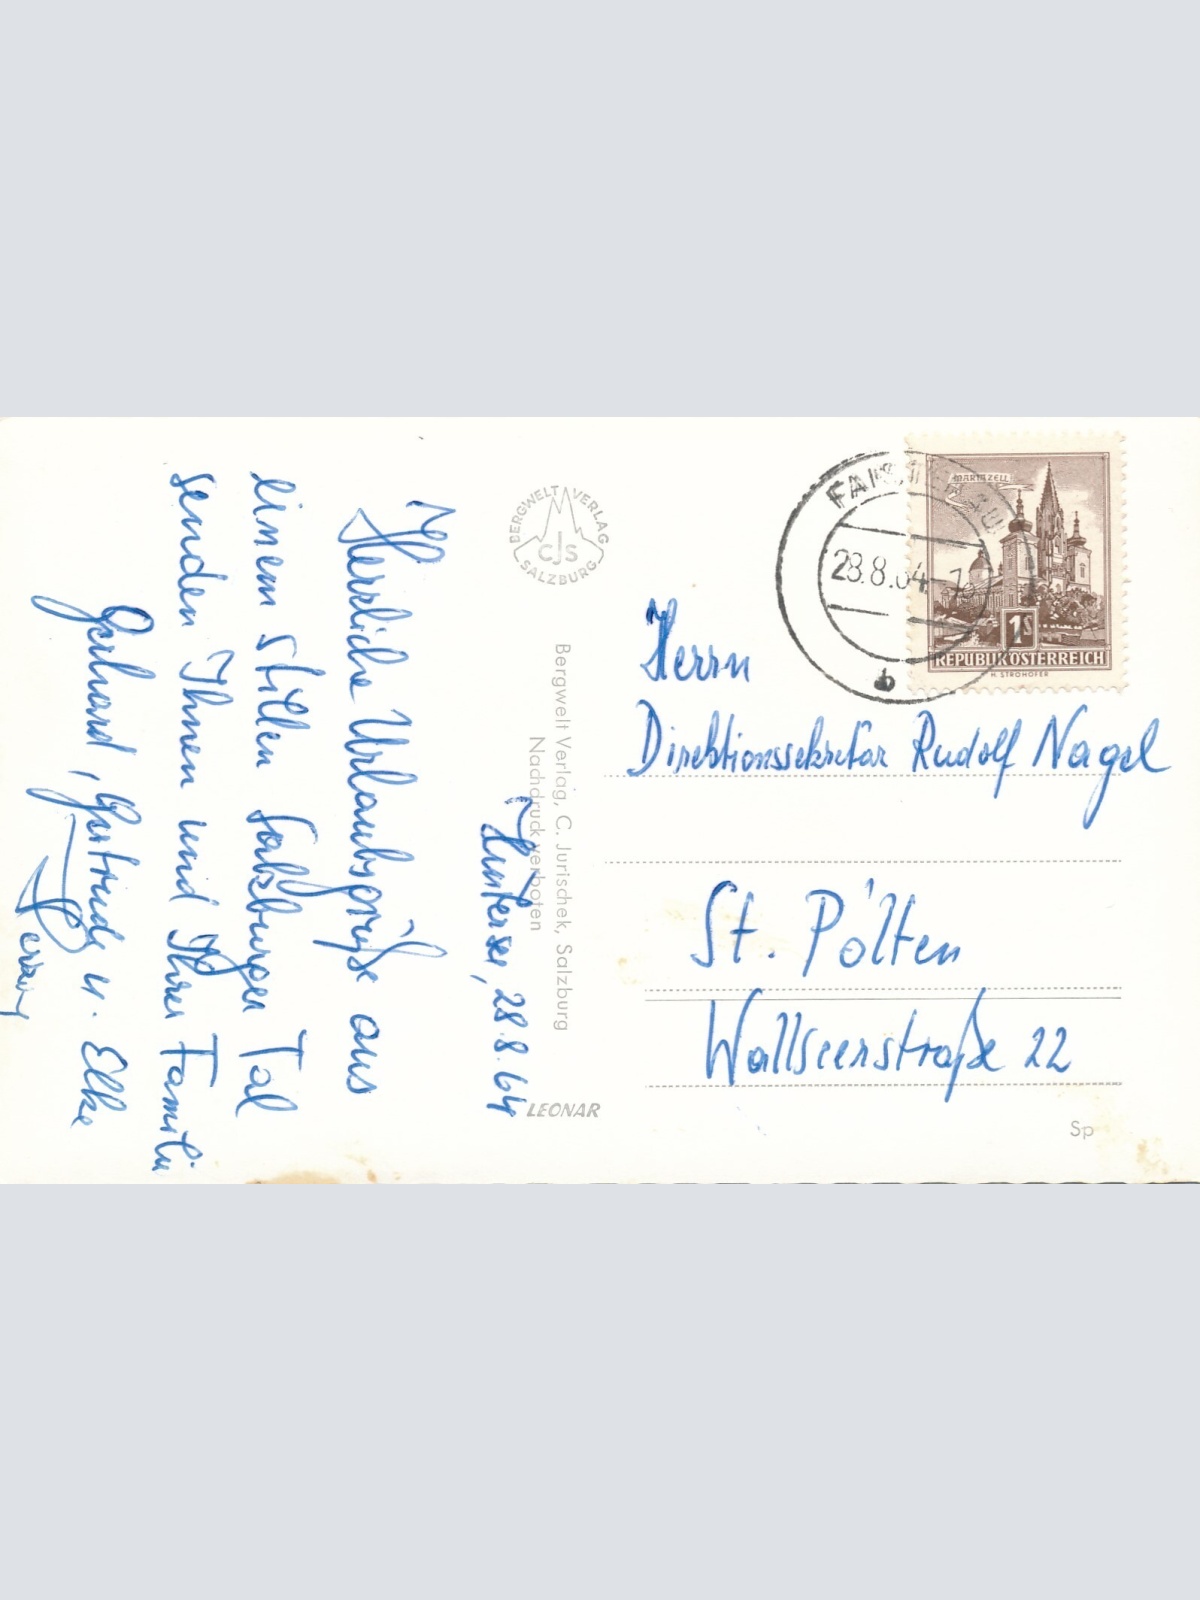 Hintersee, 28.8.64
Herzliche Urlaubsgrüße aus
einem stillen Salzburger Tal
senden Ihnen und Ihrer Familie
Gerhard, Gertrude u. Elke
BERGWELT VERLAG
CJS
SALZBURG
Bergwelt Verlag, C. Jurischek, Salzburg
Nachdruck verboten
LEONAR
28.8.64
b
MARIAZELL
1S
REPUBLIK ÖSTERREICH
H. STROHOFER
Herrn
Direktionssekretär Rudolf Nagel
St. Pölten
Wallseerstraße 22
Sp